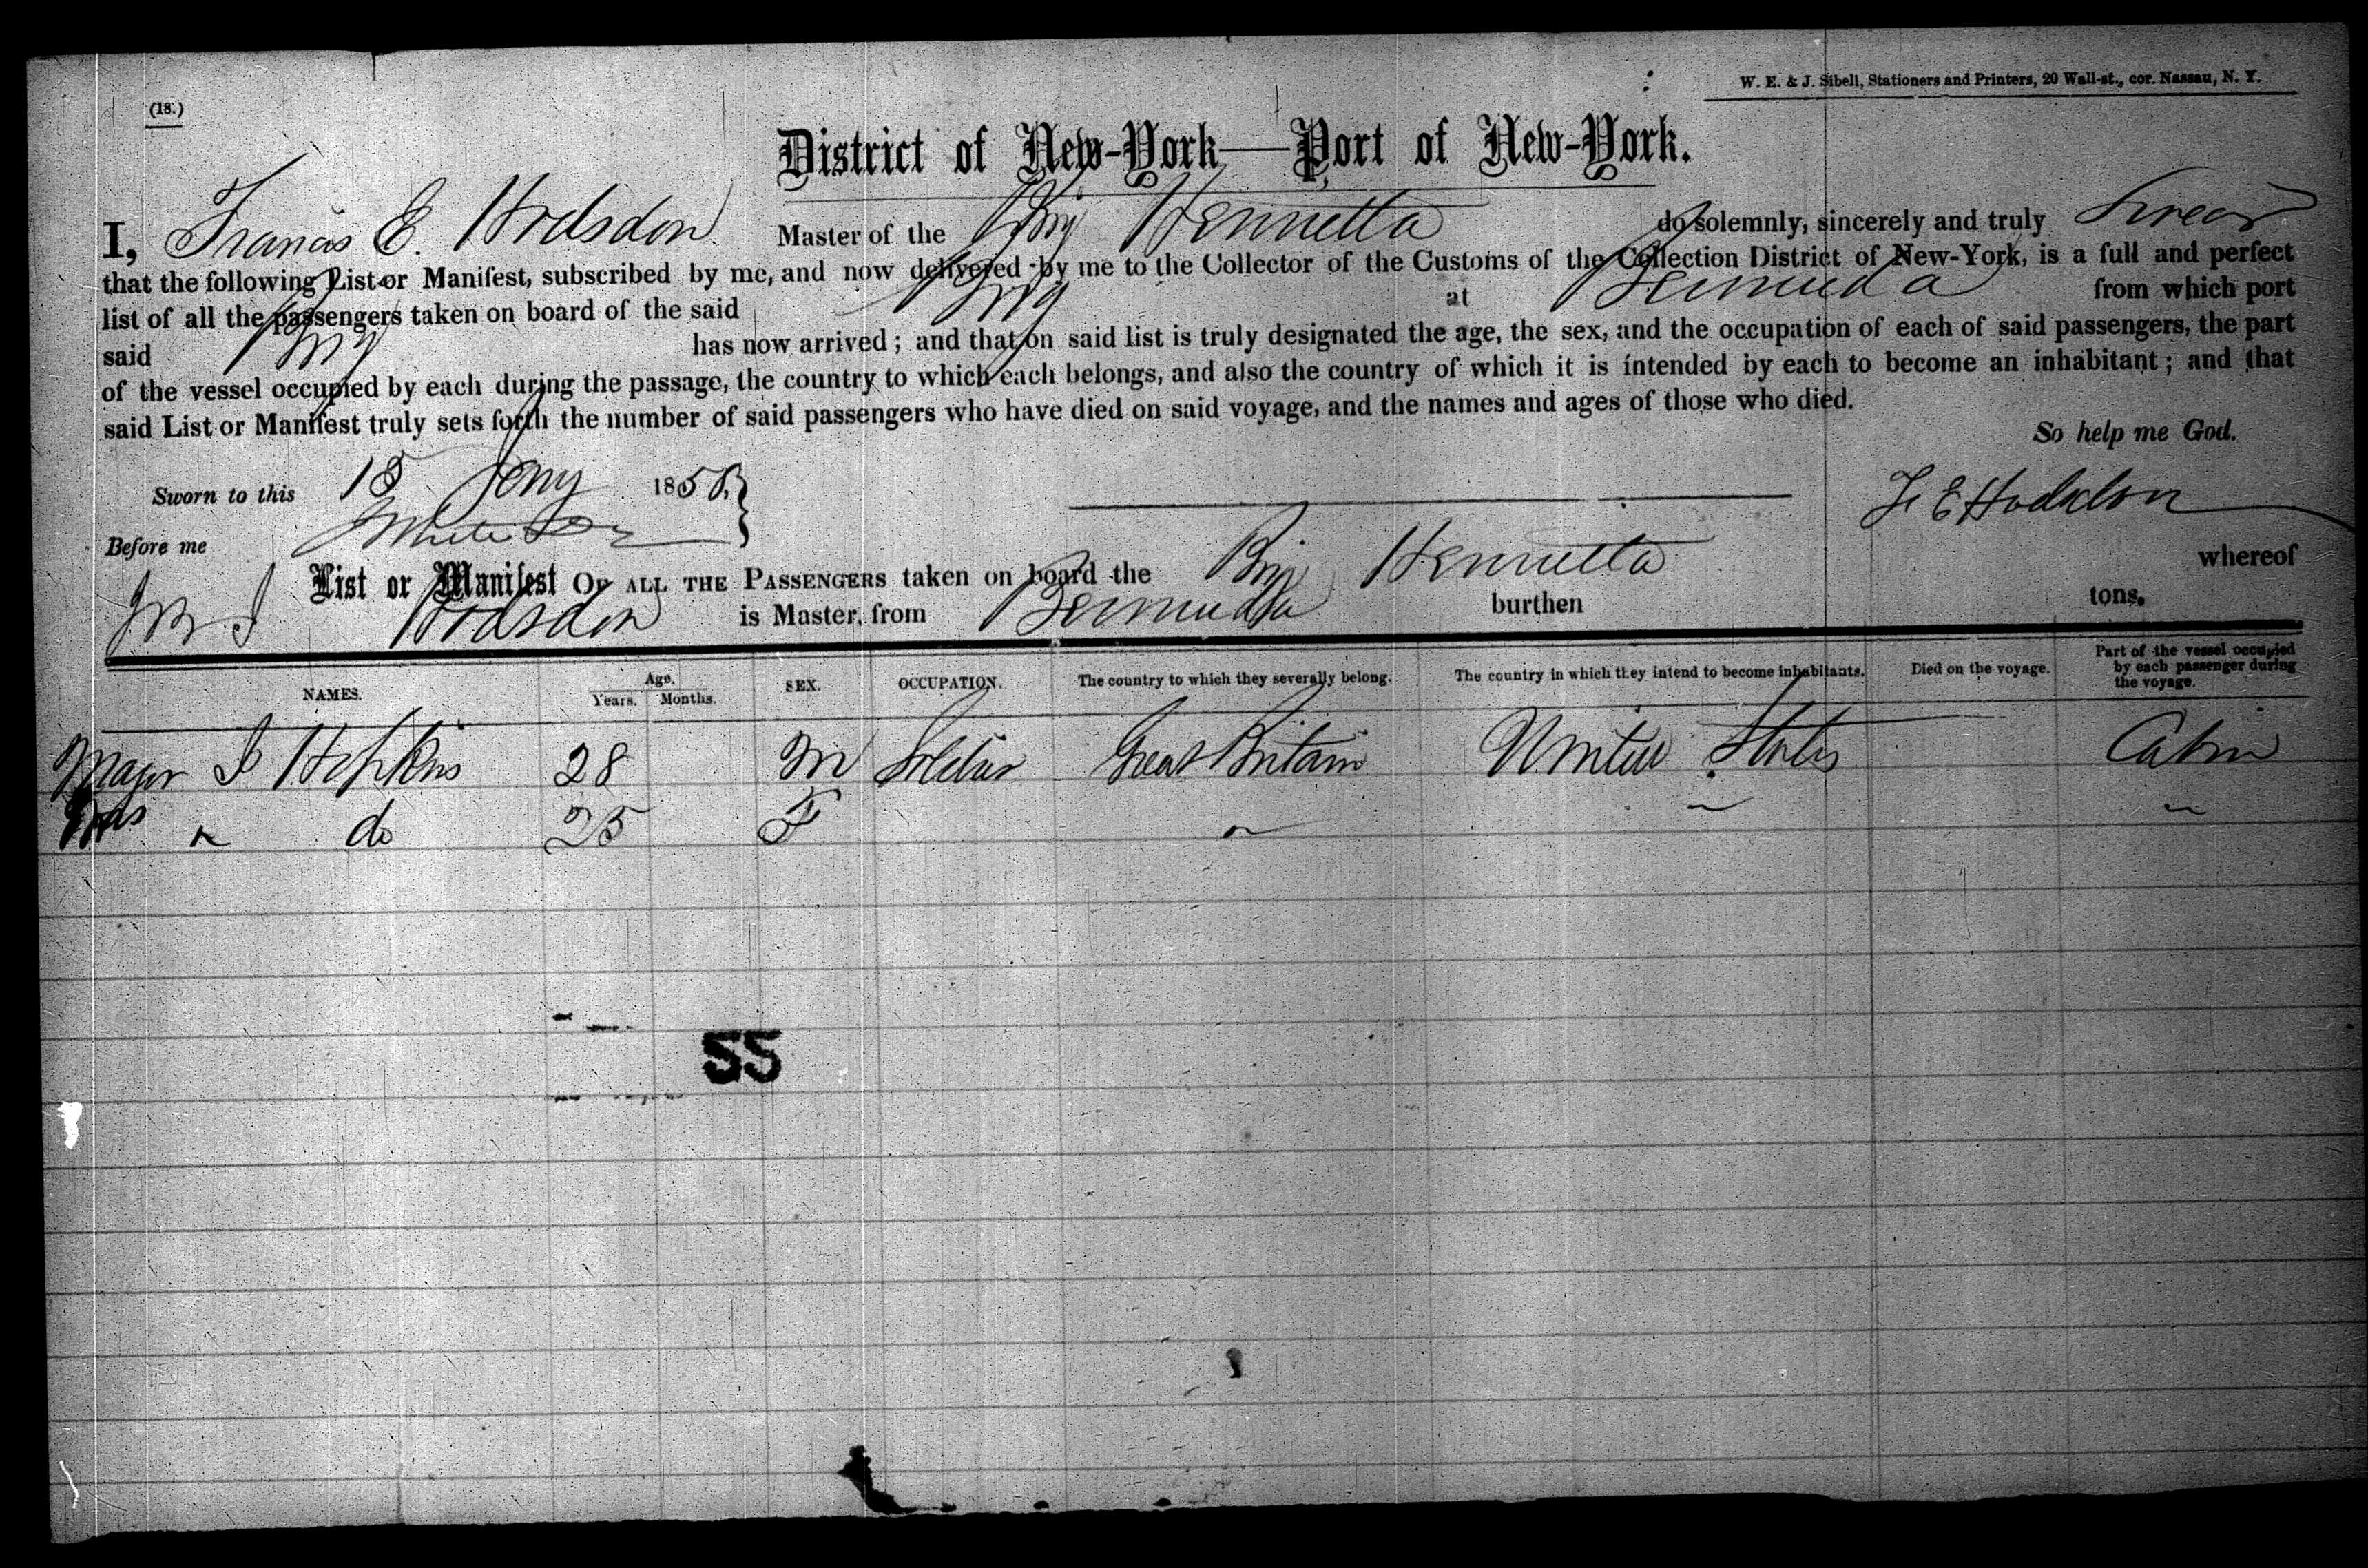 (18.)
W. E. & J. Sibell, Stationers and Printers, 20 Wall-st., cor. Nassau, N. Y.
District of New-York—Port of New-York.
I, Francis E. Hodsdon Master of the Brig Henrietta do solemnly, sincerely and truly Swear
that the following List or Manifest, subscribed by me, and now delivered by me to the Collector of the Customs of the Collection District of New-York, is a full and perfect
list of all the passengers taken on board of the said Brig at Bermuda from which port
said Brig has now arrived; and that on said list is truly designated the age, the sex, and the occupation of each of said passengers, the part
of the vessel occupied by each during the passage, the country to which each belongs, and also the country of which it is intended by each to become an inhabitant; and that
said List or Manifest truly sets forth the number of said passengers who have died on said voyage, and the names and ages of those who died.
So help me God.
Sworn to this 18 Jany 1858.
F E Hodsdon
Before me
List or Manifest OF ALL THE PASSENGERS taken on board the Brig Henrietta whereof
Hodsdon is Master, from Bermuda burthen tons.
NAMES. Age. Years. Months. SEX. OCCUPATION. The country to which they severally belong. The country in which they intend to become inhabitants. Died on the voyage. Part of the vessel occupied by each passenger during the voyage.
Major J Hopkins 28 M Soldier Great Britain United States Cabin
Mrs " do 25 F " " "
55